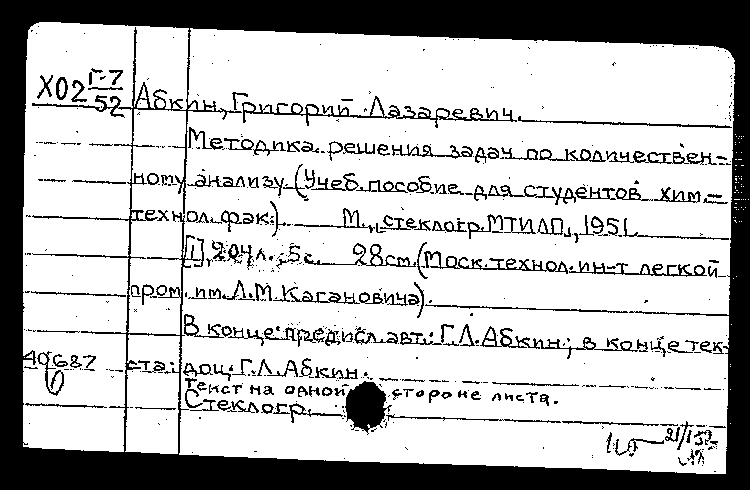 Х02 Г-7/52 Абкин, Григорий Лазаревич.
Методика решения задач по количествен-
ному анализу. (Учеб. пособие для студентов хим.-
технол. фак.). М., стеклогр. МТИЛП, 1951.
[1], 204 л., 5 с. 28 см. (Моск. технол. ин-т легкой
пром. им. Л.М. Кагановича).
В конце предисл. авт.: Г.Л. Абкин; в конце тек-
40687 ста: доц. Г.Л. Абкин.
Текст на одной стороне листа.
Стеклогр.